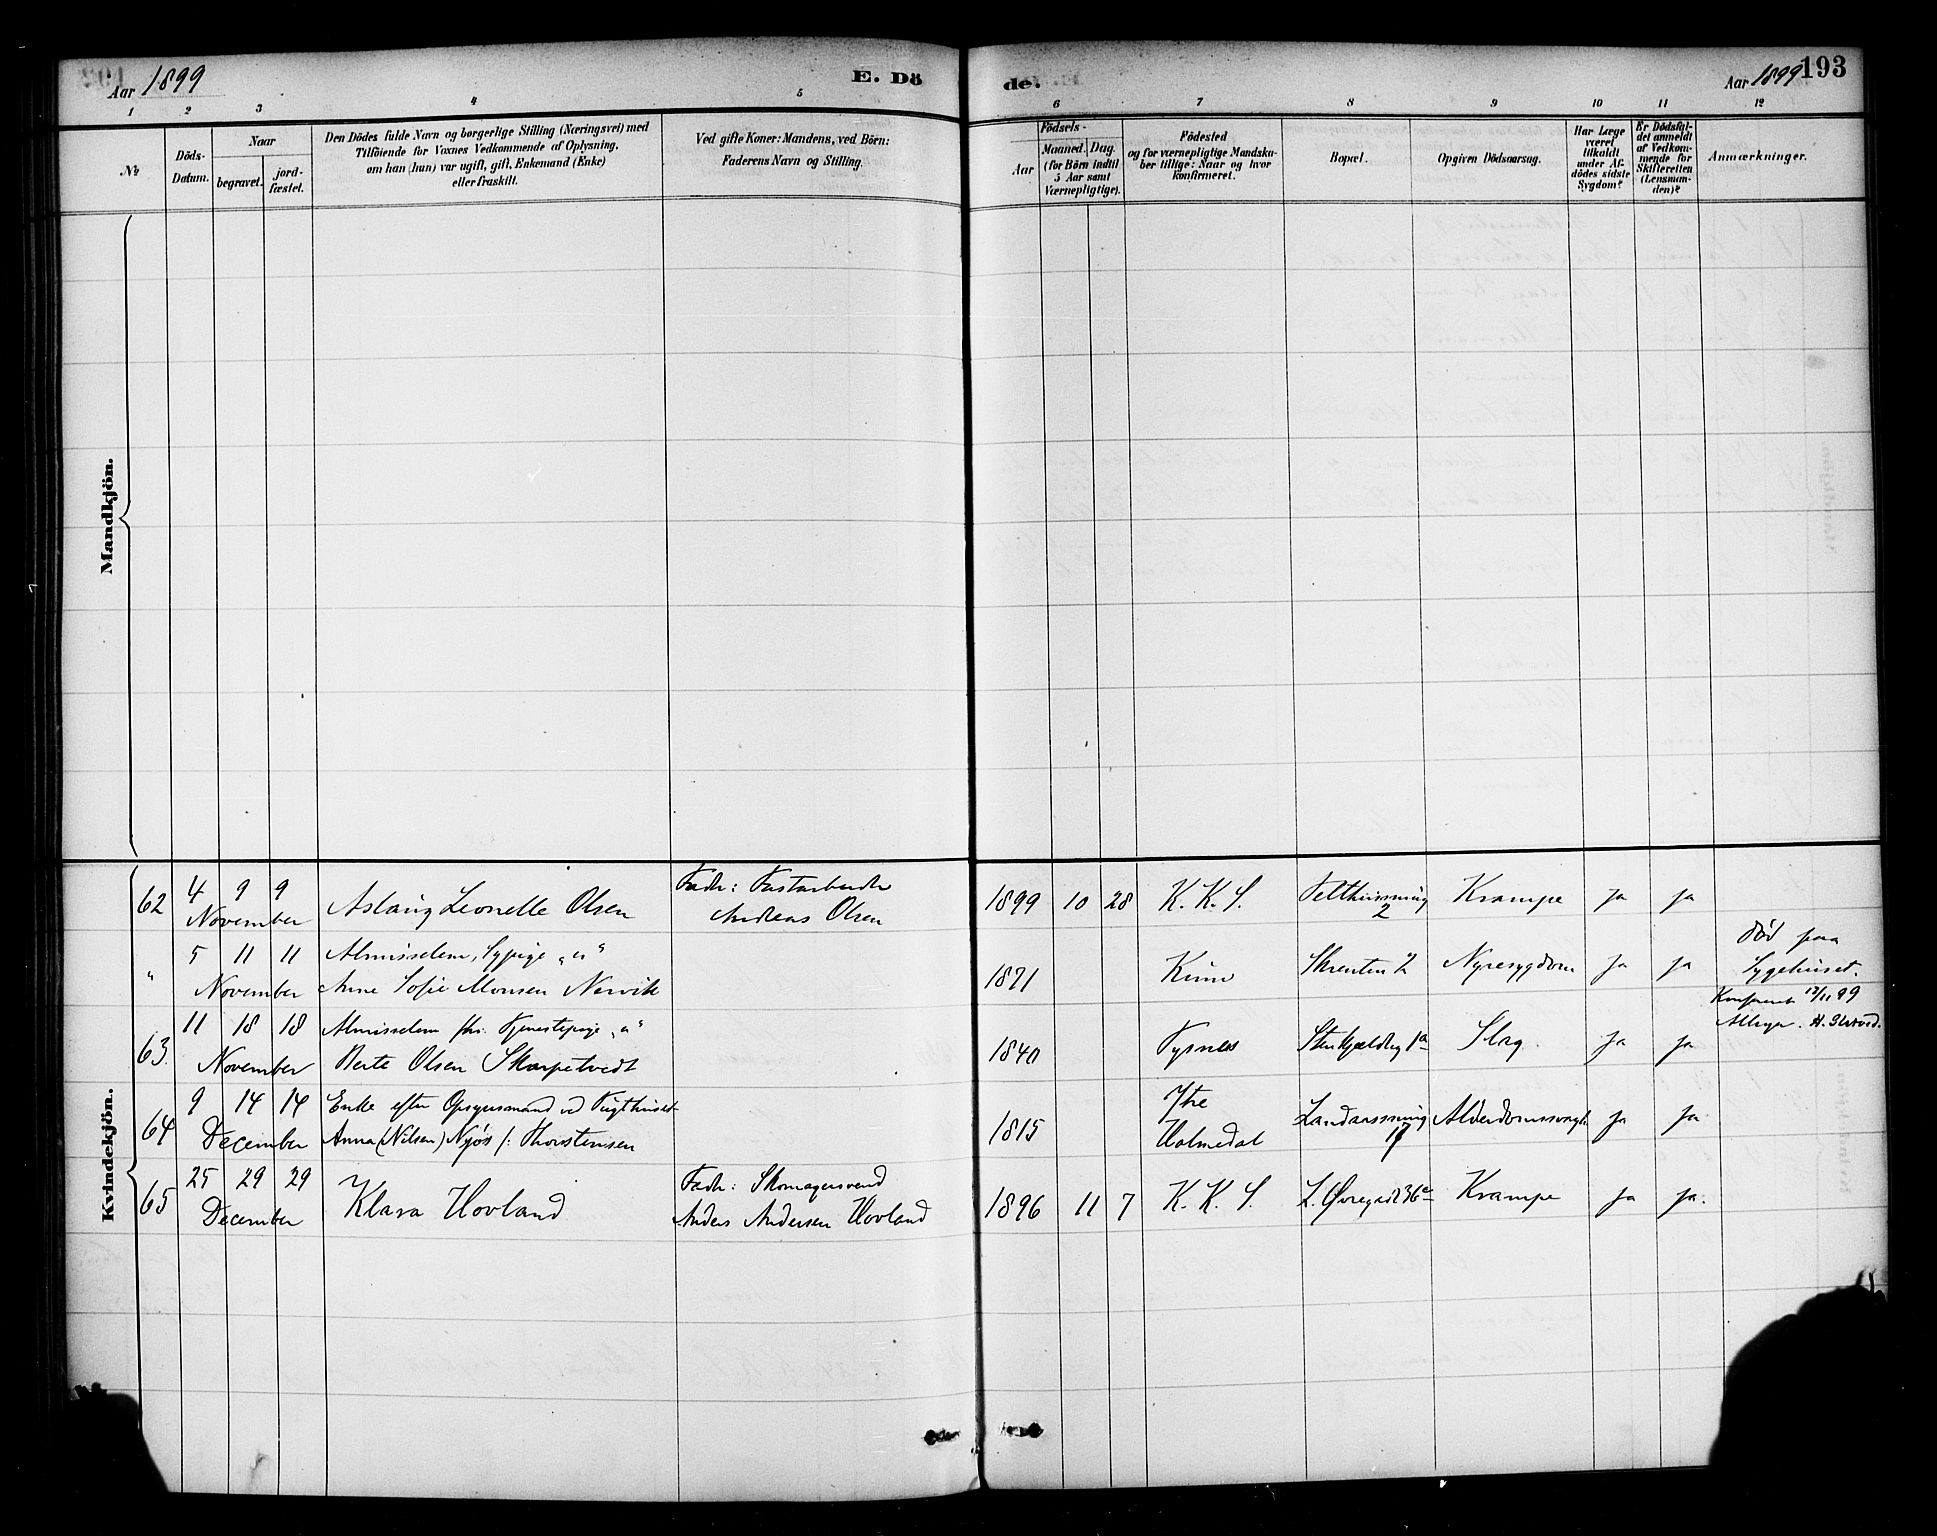 Aar 1899
E. Dö
de.
Aar 1899
193
1 2 3 4 5
6 7 8 9 10 11 12
№
Döds-
Datum.
Naar
begravet.
jord-
fæstet.
Den Dödes fulde Navn og borgerlige Stilling (Næringsvei) med
Tilföiende for Voxnes Vedkommende af Oplysning,
om han (hun) var ugift, gift, Enkemand (Enke)
eller fraskilt.
Ved gifte Koner: Mandens, ved Börn:
Faderens Navn og Stilling.
Födsels-
Aar
Maaned. Dag.
(for Börn indtil
5 Aar samt
Værnepligtige).
Födested
og for værnepligtige Mandska-
ber tillige: Naar og hvor
konfirmeret.
Bopæl.
Opgiven Dödsaarsag.
Har Læge
været
tilkaldt
under Af-
dödes sidste
Sygdom?
Er Dödsfal-
det anmeldt
af Vedkom-
mende for
Skifteretten
(Lensman-
den)?
Anmærkninger.
Mandkjön.
Kvindekjön.
62 4 9 9
November
Aslaug Leonelle Olsen
Fader:
Andreas Olsen
1899 10 28 K. K. S.
2
Krampe ja ja
" 5 11 11
November
Almisselem, Sypige „u“
Anne Sofie Monsen Nervik
1871 Kinn
Skrenten 2
Nyresygdom ja ja
död paa
Sygehuset.
11/11 99
63. 11 18 18
November
Almisselem fhv. Tjenestepige „u“
Berte Olsen Skarpetvedt
1840 Tysnes
1a
Slag. ja ja
64 9 14 14
December
Enke efter Opsynsmand ved Tugthuset
Anna (Nilsen) Njøs f: Thorstensen
1815
Ytre
Holmedal
Alderdomssvagh. ja ja
65 25 29 29
December
Klara Hovland
Fader: Skomagersvend
Anders Andersen Hovland
1896 11 7 K. K. S. L. Øregade 36
Krampe ja ja.